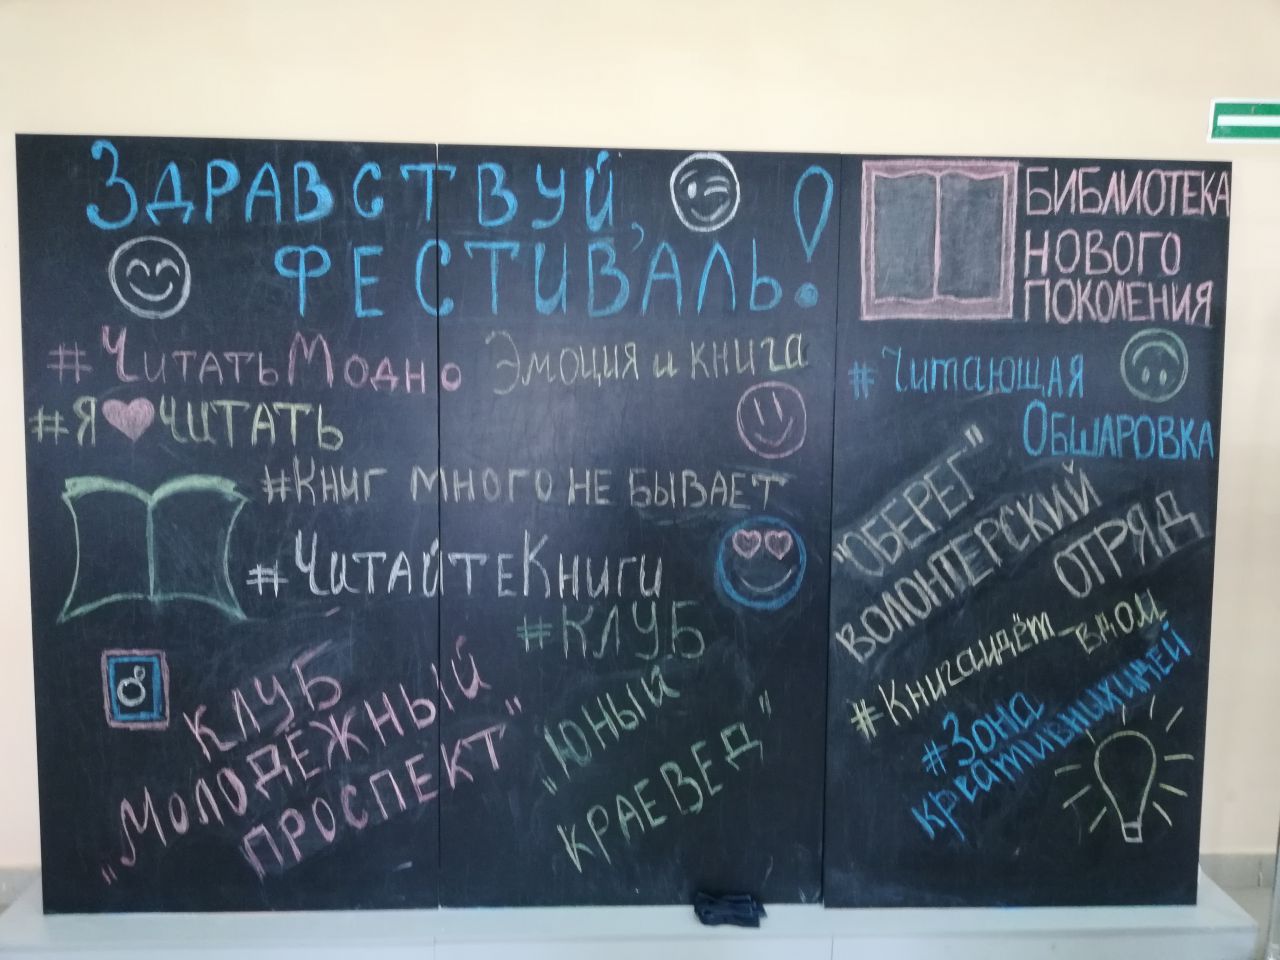 ЗДРАВСТВУЙ,
ФЕСТИВАЛЬ!
#ЧИТАТЬМОДНО
ЭМОЦИЯ И КНИГА
#Я❤ЧИТАТЬ
#КНИГ МНОГО НЕ БЫВАЕТ
#ЧИТАЙТЕКНИГИ
КЛУБ
„МОЛОДЁЖНЫЙ
ПРОСПЕКТ"
#КЛУБ
„ЮНЫЙ
КРАЕВЕД"
БИБЛИОТЕКА
НОВОГО
ПОКОЛЕНИЯ
#Читающая
ОБШАРОВКА
"ОБЕРЕГ"
ВОЛОНТЕРСКИЙ
ОТРЯД
#Книгаидёт_вдом
#Зона
креативныхидей